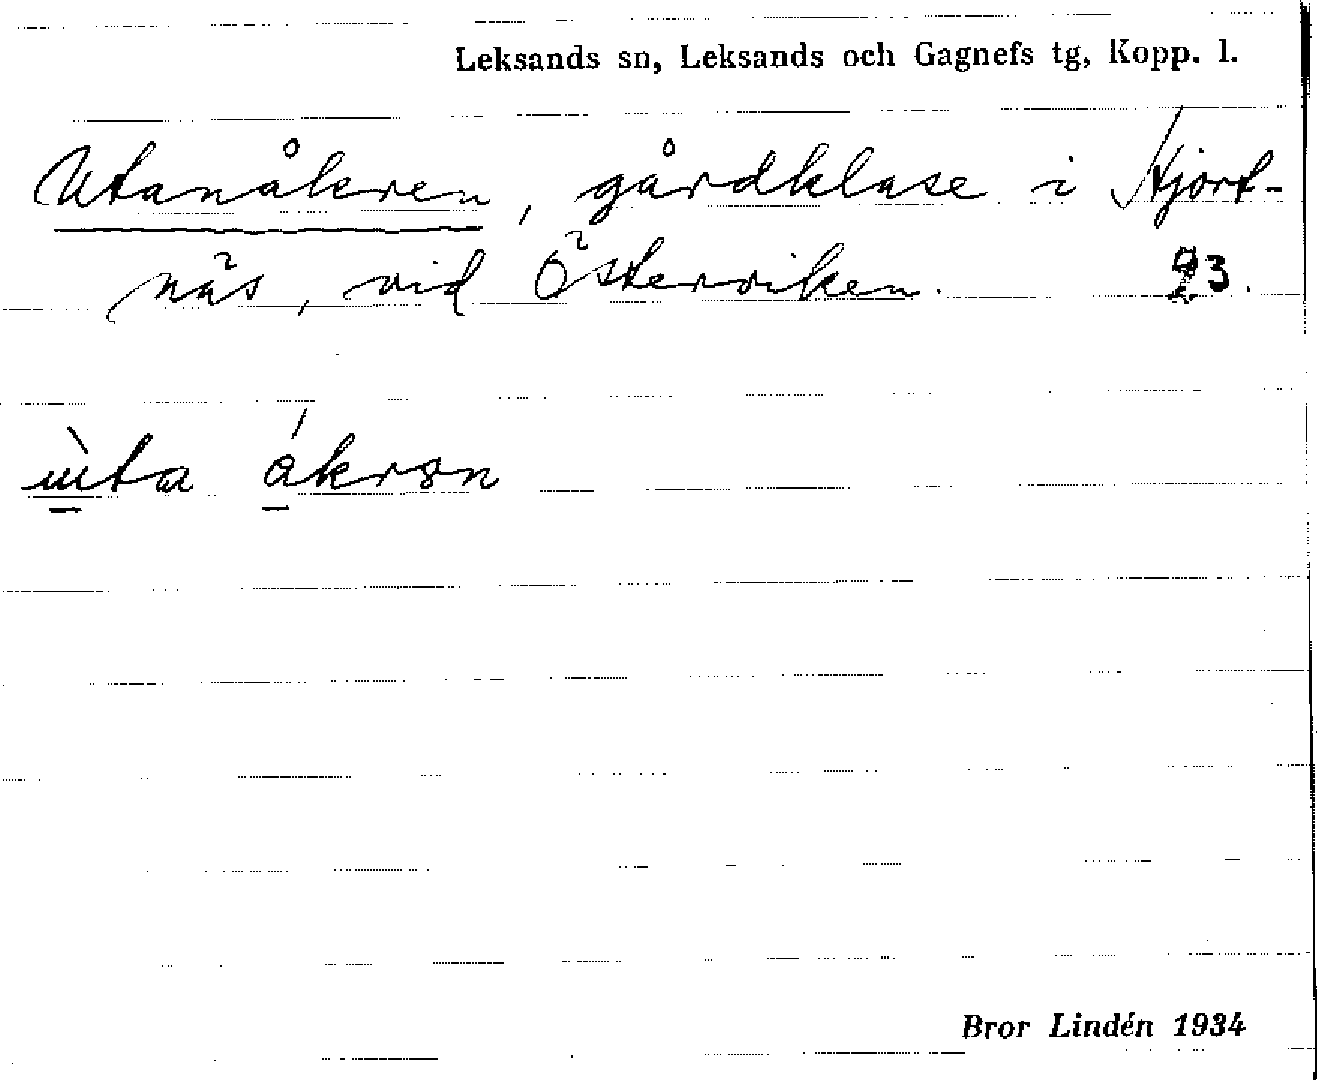 Leksands sn, Leksands och Gagnefs tg, Kopp. l.
Utanåkren, gårdklase i Hjort-
näs, vid Österviken. 93.
ùta ákrən
Bror Lindén 1934